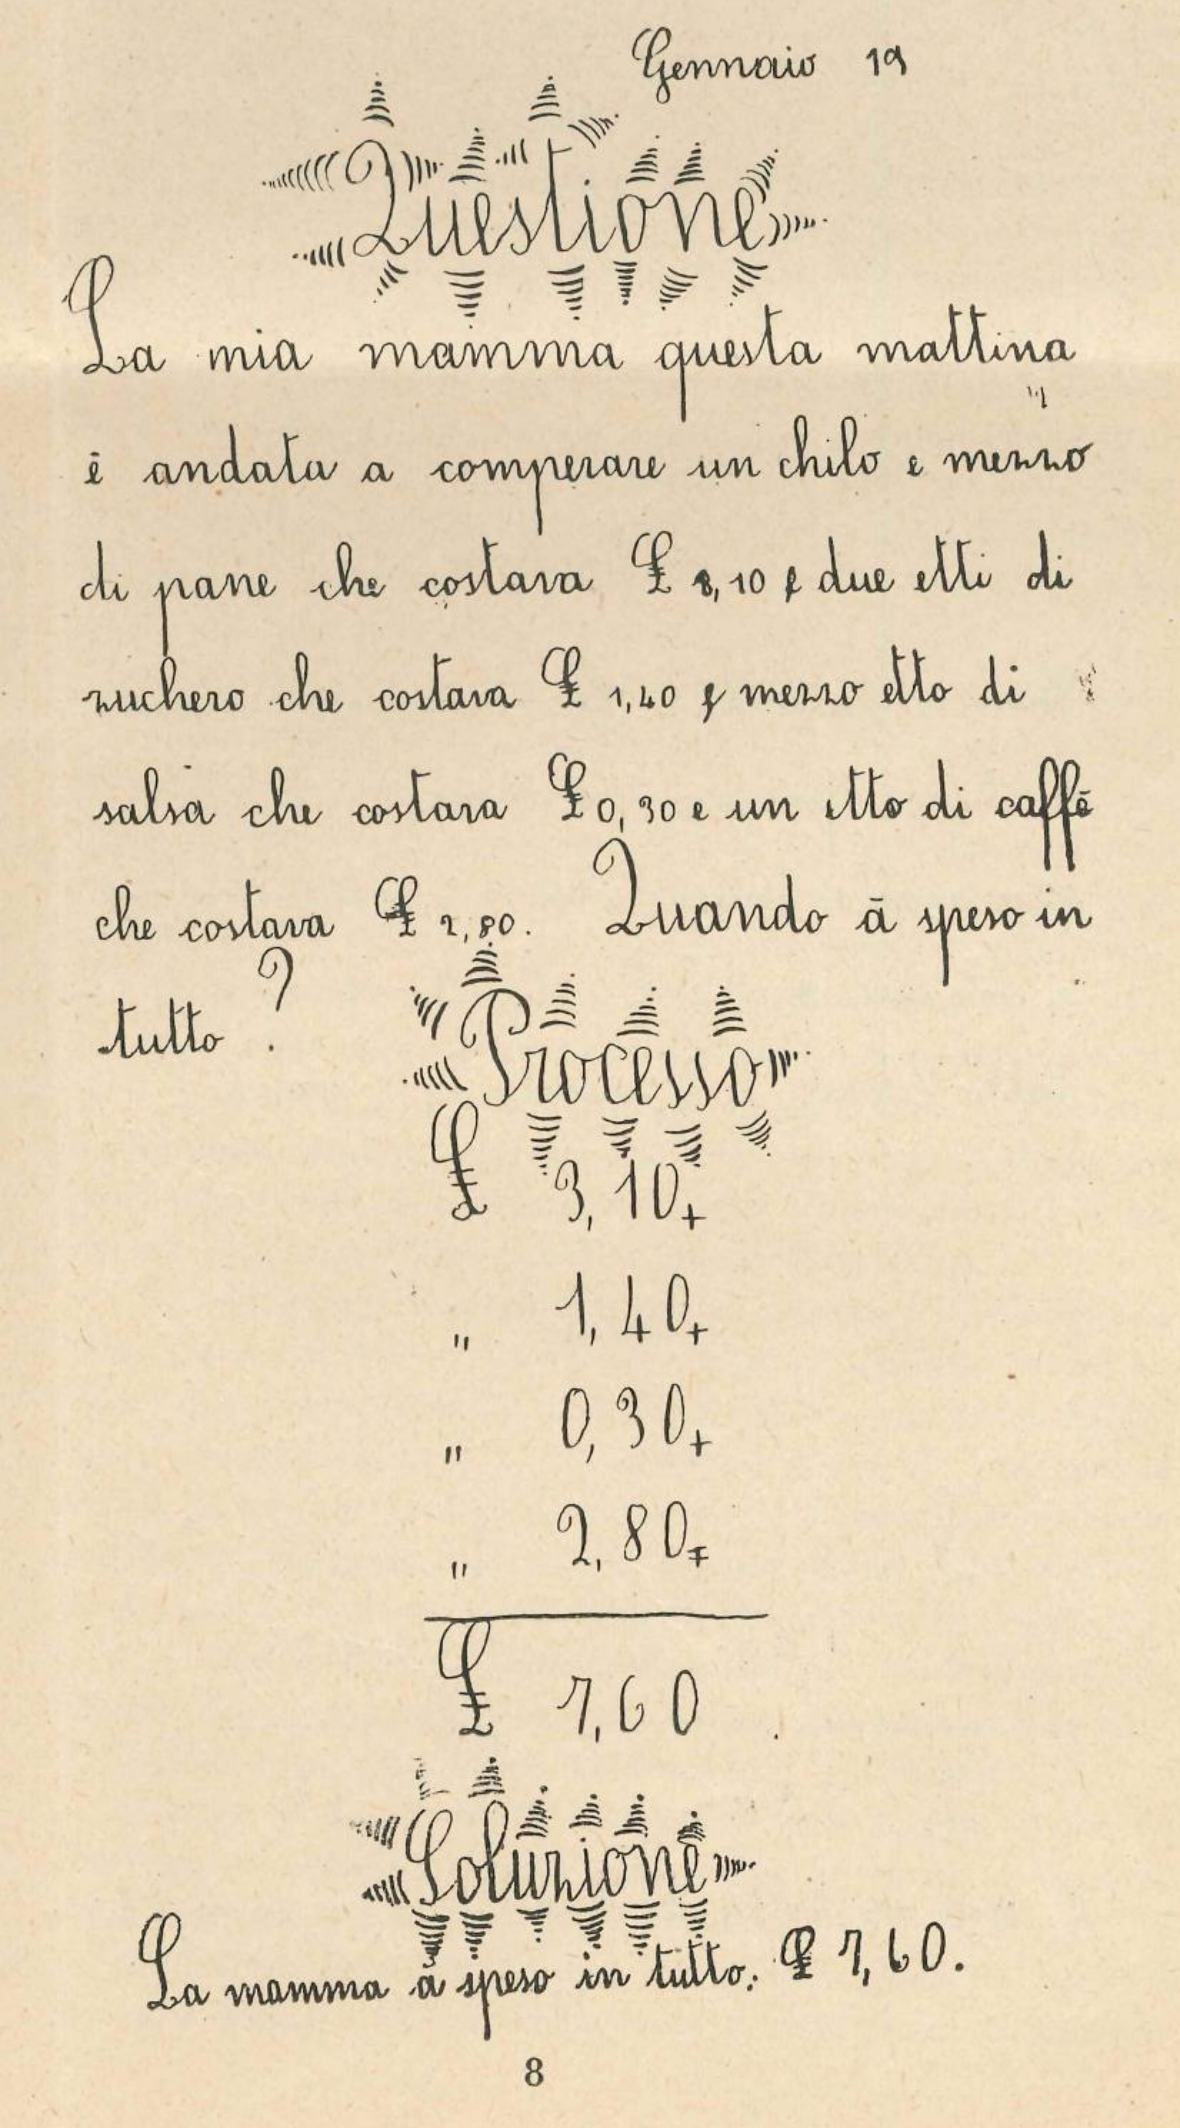 Gennaio 19
Questione
La mia mamma questa mattina
ē andata a comperare un chilo e mezzo
di pane che costava £ 3,10 e due etti di
zuchero che costava £ 1,40 e mezzo etto di
salsa che costava £ 0,30 e un etto di caffē
che costava £ 2,80. Quando ā speso in
tutto ?
Processo
£ 3,10+
" 1,40+
" 0,30+
" 2,80=
£ 7,60
Soluzione
La mamma ā speso in tutto: £ 7,60.
8